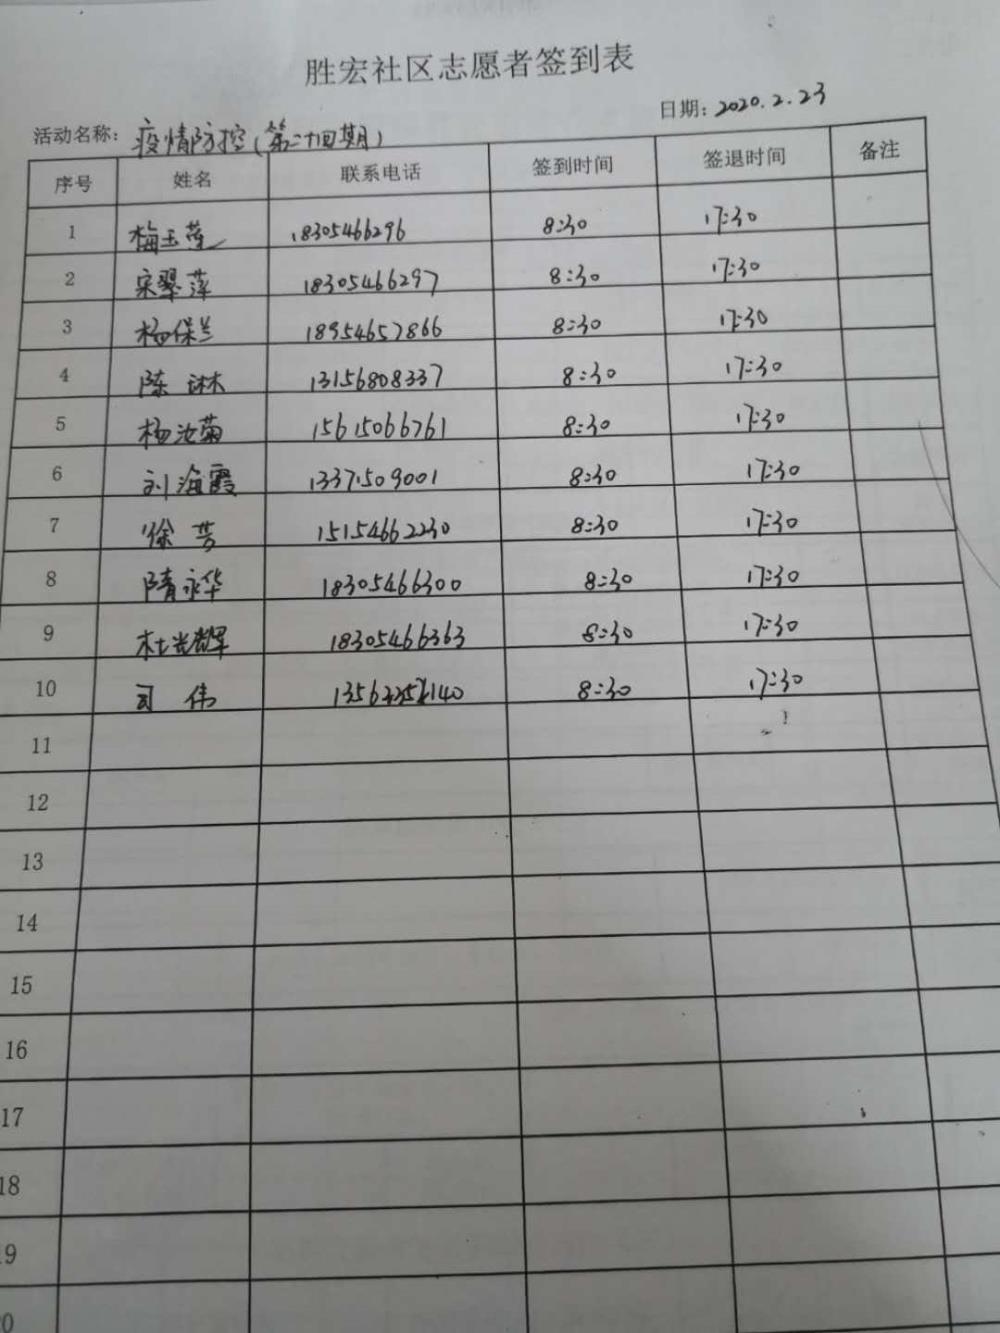 胜宏社区志愿者签到表
日期: 2020.2.23
活动名称: 疫情防控(第二十四期)
序号 姓名 联系电话 签到时间 签退时间 备注
1 梅玉莲 18305466296 8:30 17:30
2 宋翠萍 18305466297 8:30 17:30
3 杨保兰 18954657866 8:30 17:30
4 陈琳 13156808337 8:30 17:30
5 杨汝菊 15615066761 8:30 17:30
6 刘海霞 13371509001 8:30 17:30
7 徐芳 15154662230 8:30 17:30
8 隋永华 18305466300 8:30 17:30
9 杜光辉 18305466363 8:30 17:30
10 司伟 8:30 17:30
11
12
13
14
15
16
17
18
19